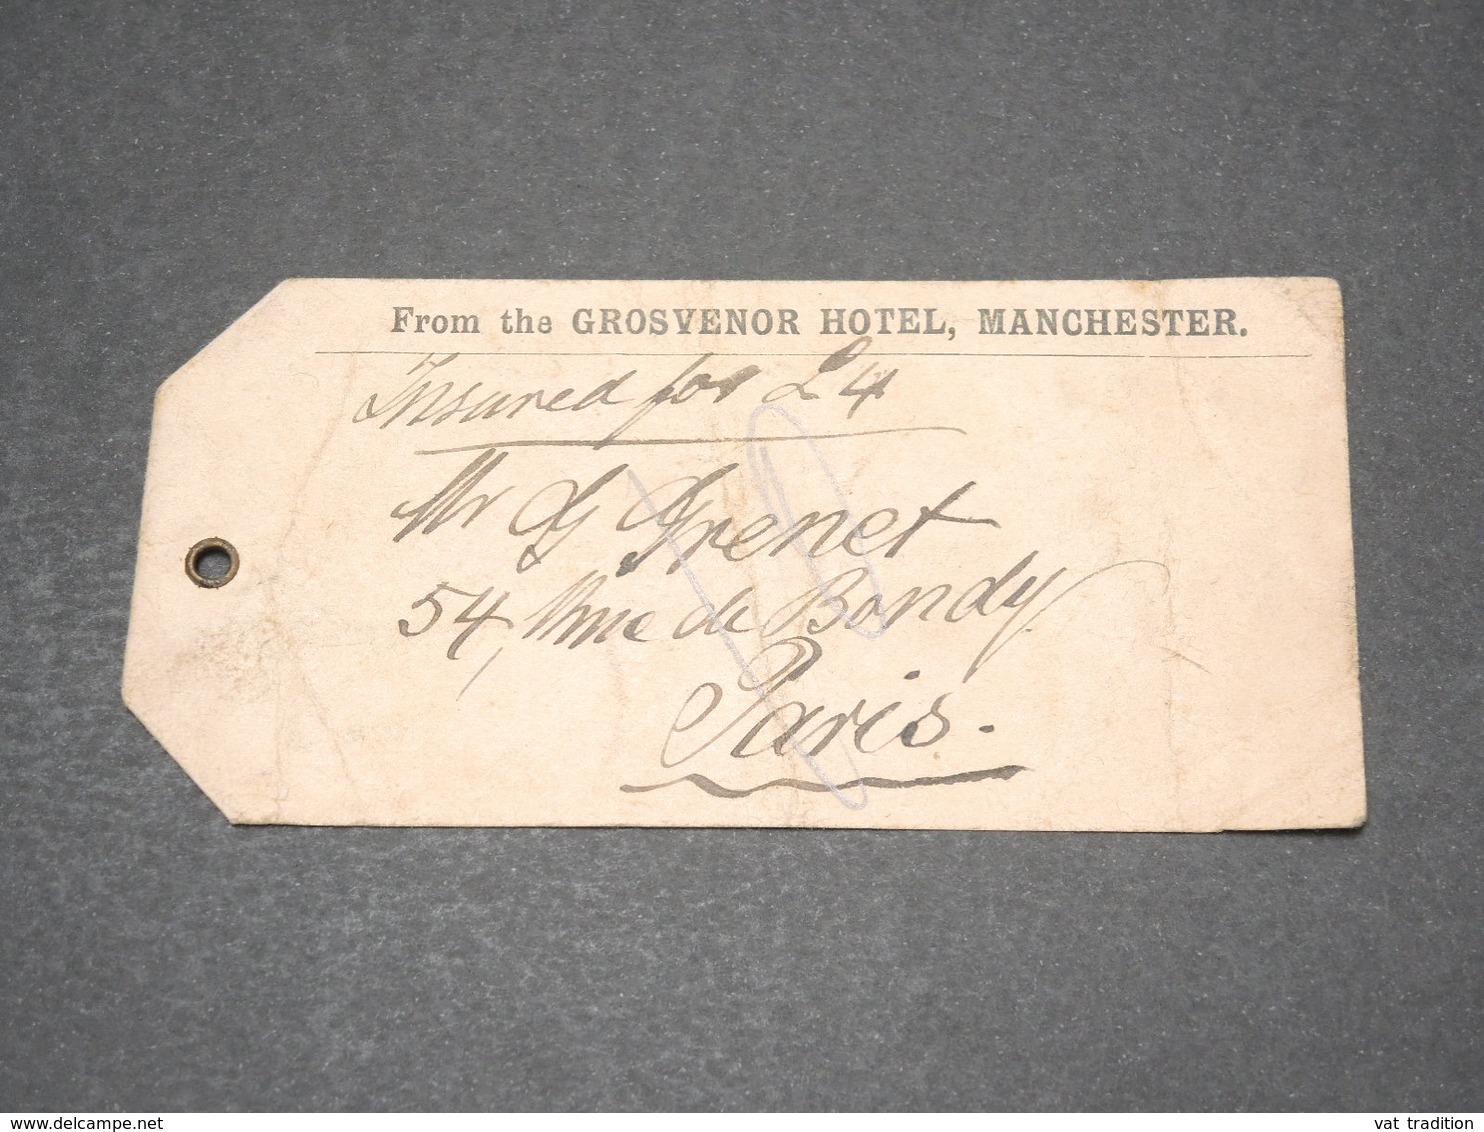 From the GROSVENOR HOTEL, MANCHESTER.
Insured for £4
Mr G Grenet
54, Rue de Bondy
Paris.
delcampe.net
vat tradition